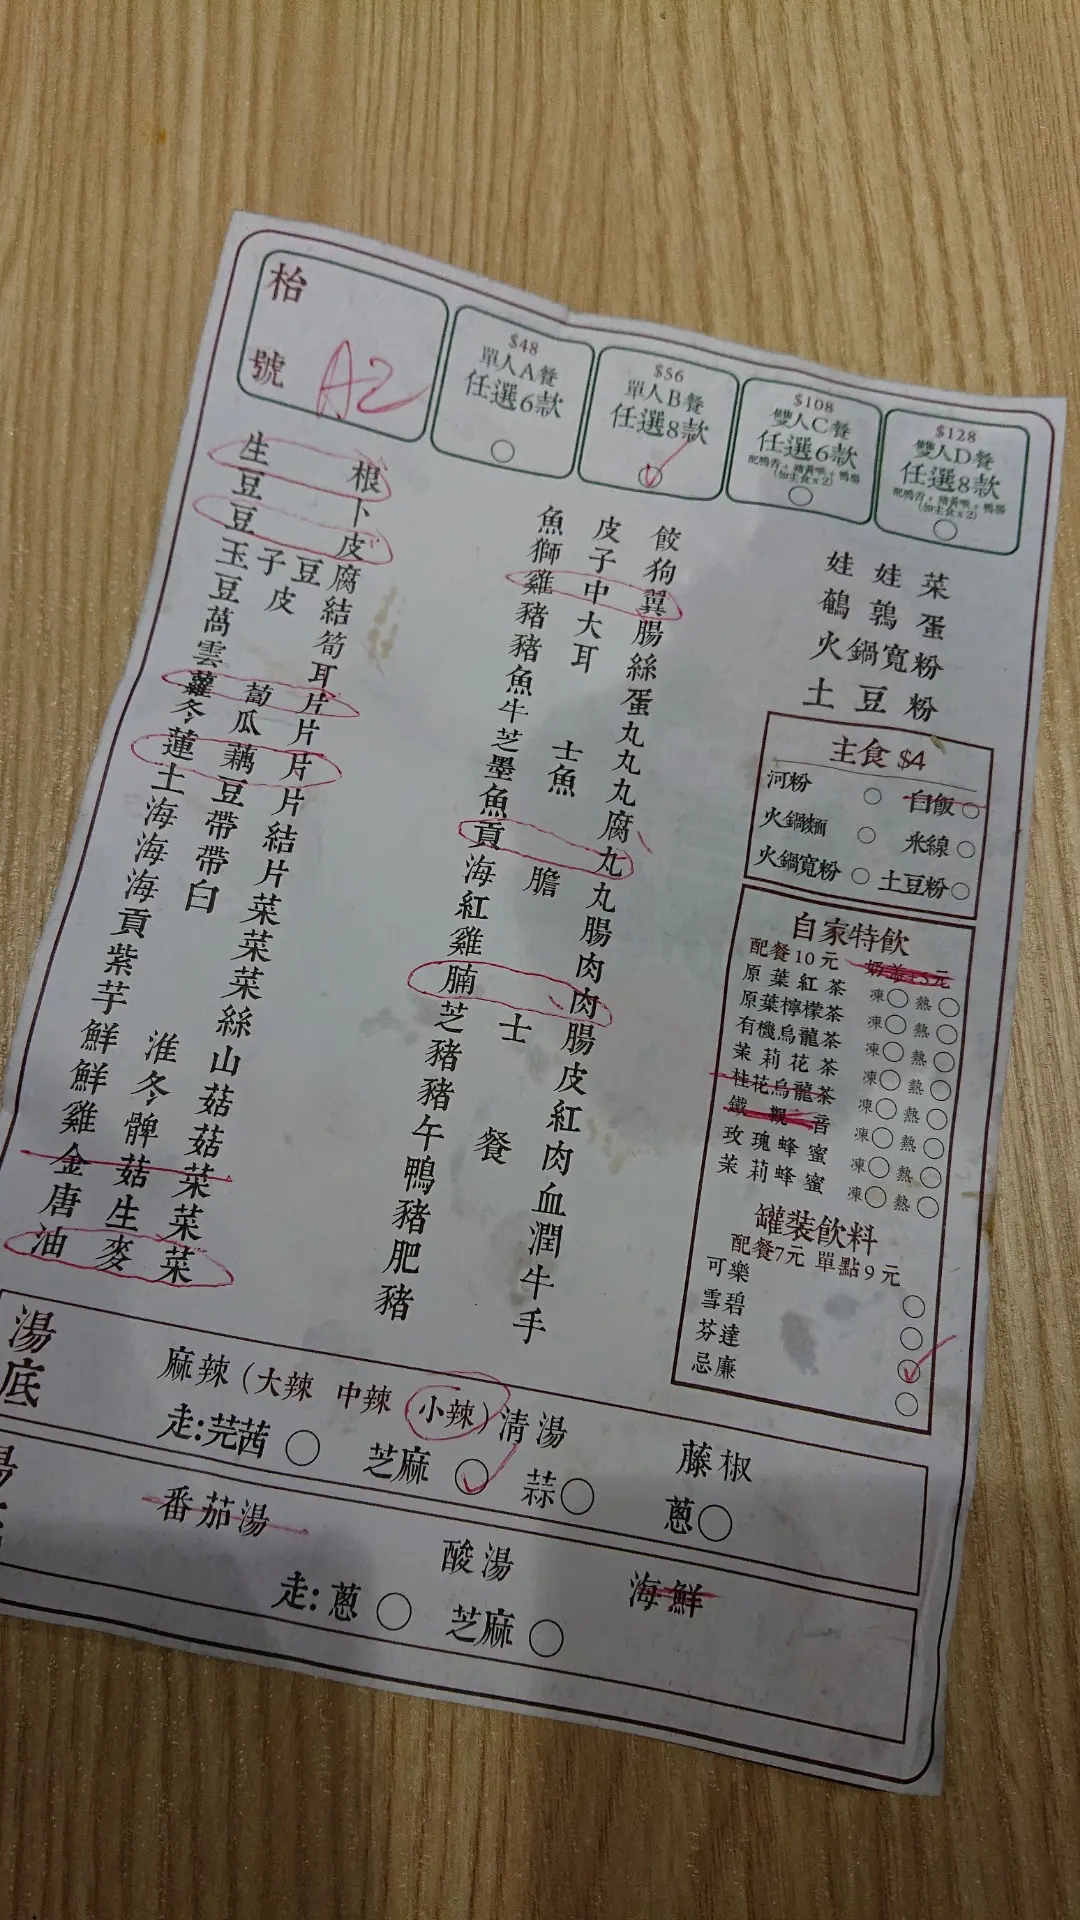 枱號 A2
$48
單人A餐
任選6款
$56
單人B餐
任選8款
$108
雙人C餐
任選6款
配鴨舌+豬黃喉+鴨腸
(加主食x2)
$128
雙人D餐
任選8款
配鴨舌+豬黃喉+鴨腸
(加主食x2)
生根
豆卜
豆皮
玉子豆腐
豆皮結
萵筍
雲耳
蘿蔔片
冬瓜片
蓮藕片
土豆片
海帶結
海帶片
海白菜
貢菜
紫菜
芋絲
鮮淮山
鮮冬菇
雞髀菇
金菇菜
唐生菜
油麥菜
魚皮餃
獅子狗
雞中翼
豬大腸
豬耳絲
魚蛋
牛丸
芝士丸
墨魚丸
魚腐
貢丸
海膽丸
紅腸
雞肉
腩肉
芝士腸
豬皮
豬紅
午餐肉
鴨血
豬潤
肥牛
豬手
娃娃菜
鵪鶉蛋
火鍋寬粉
土豆粉
主食 $4
河粉 白飯
火鍋麵 米線
火鍋寬粉 土豆粉
自家特飲
配餐10元 奶蓋+5元
原葉紅茶 凍 熱
原葉檸檬茶 凍 熱
有機烏龍茶 凍 熱
茉莉花茶 凍 熱
桂花烏龍茶 凍 熱
鐵觀音 凍 熱
玫瑰蜂蜜 凍 熱
茉莉蜂蜜 凍 熱
罐裝飲料
配餐7元 單點9元
可樂
雪碧
芬達
忌廉
湯底
麻辣(大辣 中辣 小辣) 清湯 藤椒
走:芫茜 芝麻 蒜 蔥
番茄湯 酸湯 海鮮
走:蔥 芝麻